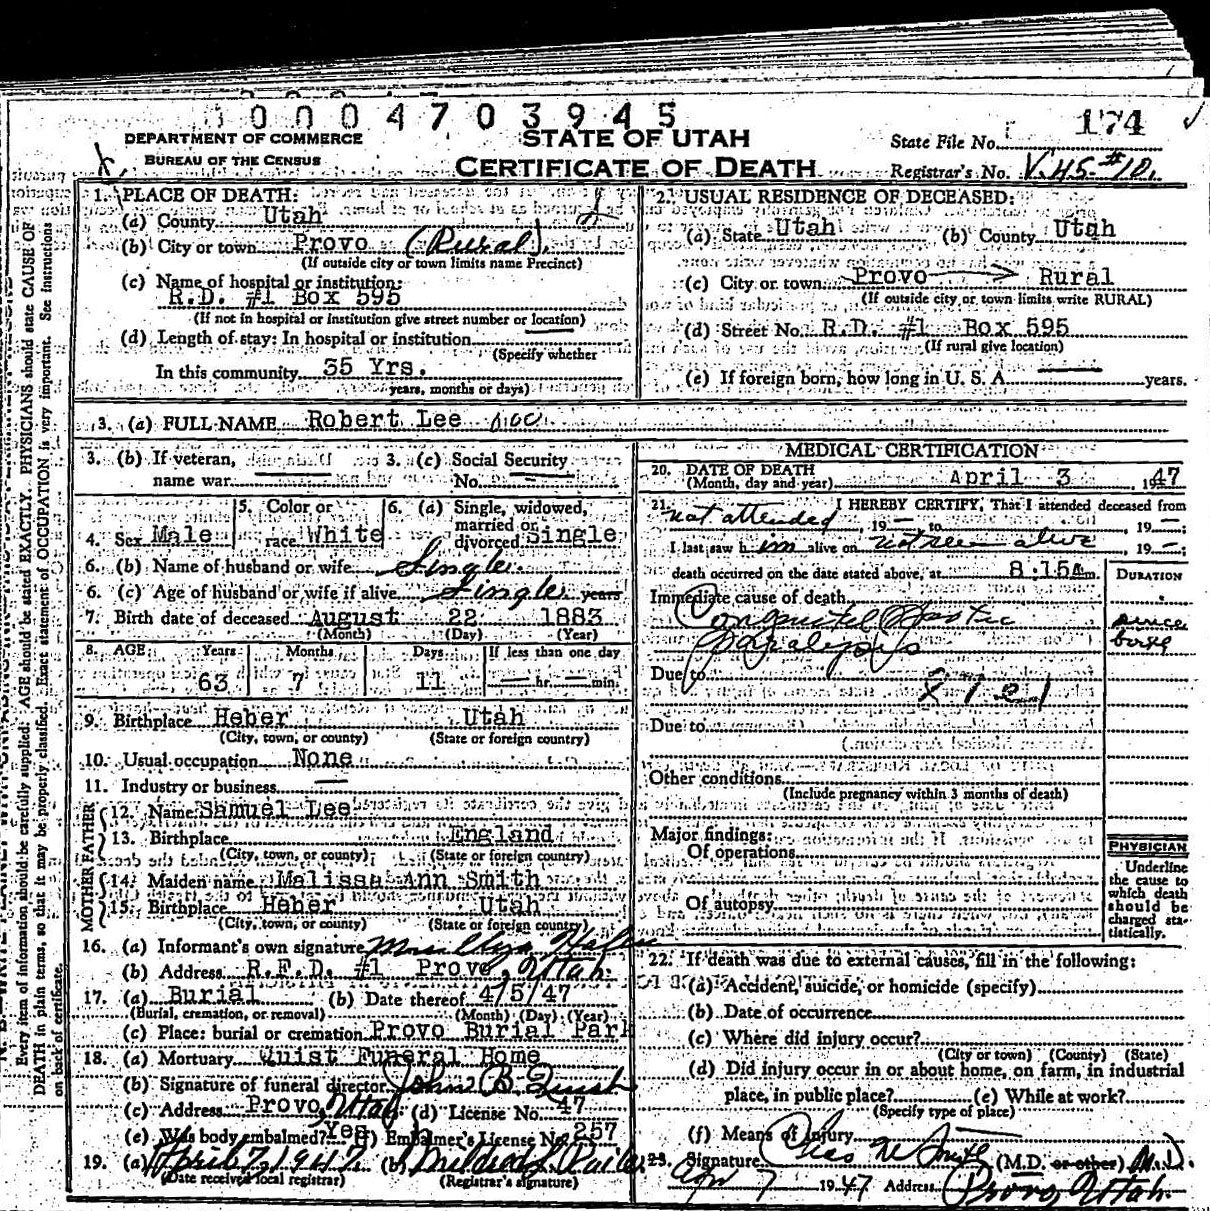 0 0 0 4 7 0 3 9 4 5
174
DEPARTMENT OF COMMERCE
BUREAU OF THE CENSUS
STATE OF UTAH
CERTIFICATE OF DEATH
State File No.
Registrar's No. V.45-#10.
1. PLACE OF DEATH:
(a) County Utah
(b) City or town Provo (Rural)
(If outside city or town limits name Precinct)
(c) Name of hospital or institution:
R.D. #1 Box 595
(If not in hospital or institution give street number or location)
(d) Length of stay: In hospital or institution
(Specify whether
In this community 35 Yrs.
years, months or days)
2. USUAL RESIDENCE OF DECEASED:
(a) State Utah (b) County Utah
(c) City or town Provo Rural
(If outside city or town limits write RURAL)
(d) Street No. R.D. #1 Box 595
(If rural give location)
(e) If foreign born, how long in U. S. A. years.
3. (a) FULL NAME Robert Lee
3. (b) If veteran,
name war
3. (c) Social Security
No.
4. Sex Male
5. Color or
race White
6. (a) Single, widowed,
married or
divorced Single
6. (b) Name of husband or wife Single
6. (c) Age of husband or wife if alive Single years
7. Birth date of deceased August 22 1883
(Month) (Day) (Year)
8. AGE Years Months Days If less than one day
63 7 11 hr. min.
9. Birthplace Heber Utah
(City, town, or county) (State or foreign country)
10. Usual occupation None
11. Industry or business
FATHER
12. Name Samuel Lee
13. Birthplace England
(City, town, or county) (State or foreign country)
MOTHER
14. Maiden name Malissa Ann Smith
15. Birthplace Heber Utah
(City, town, or county) (State or foreign country)
16. (a) Informant's own signature
(b) Address R.F.D. #1 Provo, Utah.
17. (a) Burial (b) Date thereof 4/5/47
(Burial, cremation, or removal) (Month) (Day) (Year)
(c) Place: burial or cremation Provo Burial Park
18. (a) Mortuary Quist Funeral Home
(b) Signature of funeral director John B. Quist
(c) Address Provo, Utah (d) License No. 47
(e) Was body embalmed? Yes (f) Embalmer's License No. 257
19. (a) April 7, 1947. (b) Mildred
(Date received local registrar) (Registrar's signature)
MEDICAL CERTIFICATION
20. DATE OF DEATH
(Month, day and year) April 3, 1947
21. I HEREBY CERTIFY, That I attended deceased from
not attended, 19—, to 19—;
I last saw him alive on not seen alive, 19—;
death occurred on the date stated above, at 8:15a m.
DURATION
Immediate cause of death
Congenital Spastic
Paralysis
since
Due to
Due to
Other conditions
(Include pregnancy within 3 months of death)
Major findings:
Of operations
Of autopsy
PHYSICIAN
Underline
the cause to
which death
should be
charged sta-
tistically.
22. If death was due to external causes, fill in the following:
(a) Accident, suicide, or homicide (specify)
(b) Date of occurrence
(c) Where did injury occur?
(City or town) (County) (State)
(d) Did injury occur in or about home, on farm, in industrial
place, in public place? (e) While at work?
(Specify type of place)
(f) Means of injury
23. Signature (M.D. or other) M.D.
Apr 7 1947 Address Provo, Utah.
Every item of information should be carefully supplied. AGE should be stated EXACTLY. PHYSICIANS should state CAUSE OF
DEATH in plain terms, so that it may be properly classified. Exact statement of OCCUPATION is very important. See instructions
on back of certificate.